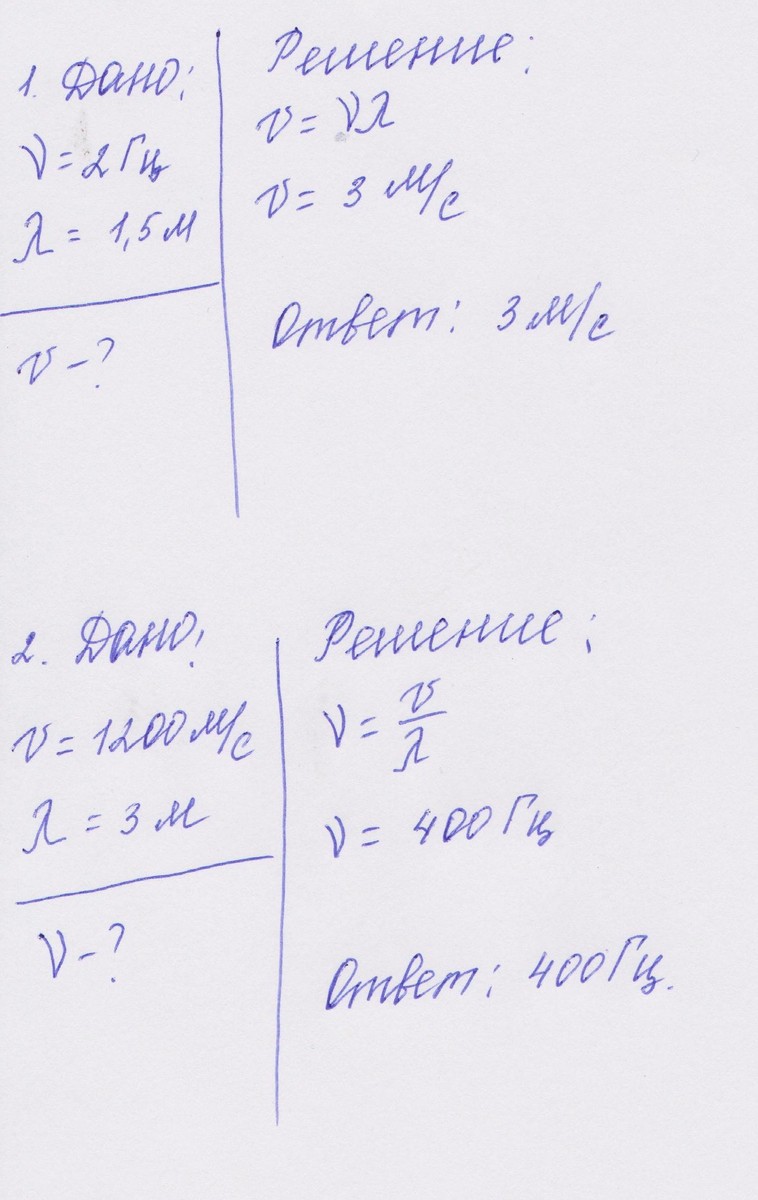 1. Дано:
ν = 2 Гц
λ = 1,5 м
v - ?
Решение:
v = νλ
v = 3 м/с
Ответ: 3 м/с
2. Дано:
v = 1200 м/с
λ = 3 м
ν - ?
Решение:
ν = v/λ
ν = 400 Гц
Ответ: 400 Гц.